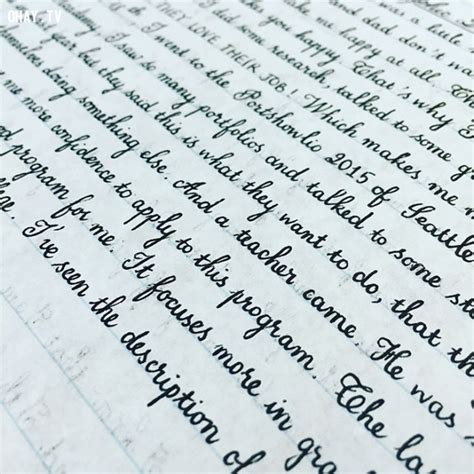 OHAY.TV
was a little
and dad don't
make me happy at all.
you happy. That's why I
some research, talked to some
THEY LOVE THEIR JOB! Which makes me
I went to the Portshowlio 2015 of Seattle
I saw so many portfolios and talked to some
year but they said this is what they want to do, that
doing something else. And a teacher came. He was
me more confidence to apply to this program. The
program for me. It focuses more in
I've seen the description of